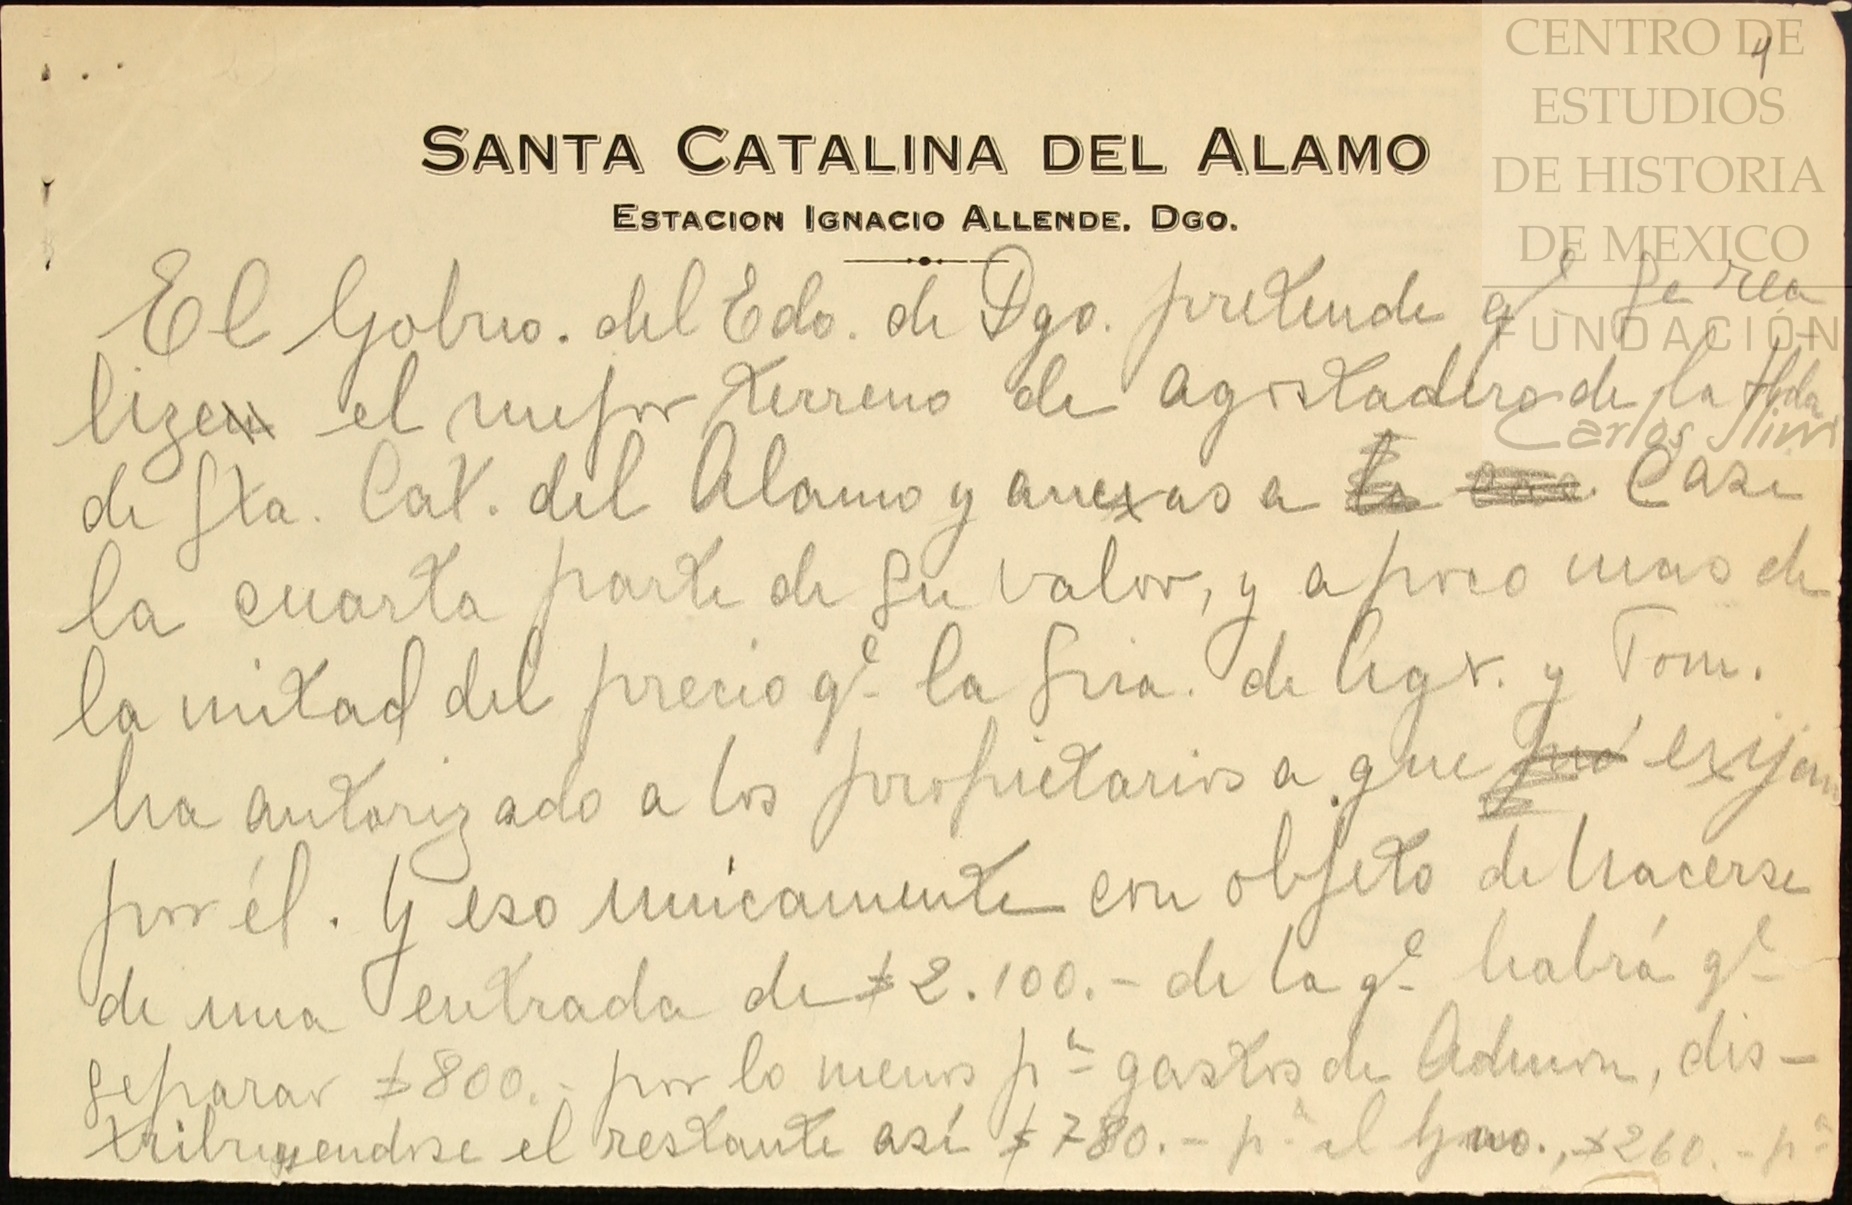 CENTRO DE
ESTUDIOS
DE HISTORIA
DE MEXICO
FUNDACIÓN
Carlos Slim
4
SANTA CATALINA DEL ALAMO
ESTACION IGNACIO ALLENDE. DGO.
El Gobno. del Edo. de Dgo. pretende qe. se rea
lize el mejor terreno de agostadero de la Hda
de Sta. Cat. del Alamo y anexas a casi
la cuarta parte de su valor, y a poco mas de
la mitad del precio qe. la Sria. de Agr. y Fom.
ha autorizado a los propietarios a que exijan
por él. Y eso unicamente con objeto de hacerse
de una entrada de $2.100.- de la qe. habrá qe.
separar $800.- por lo menos pa. gastos de Admon, dis-
tribuyendose el restante así $780.- pa. el Gno., $260.- pa.